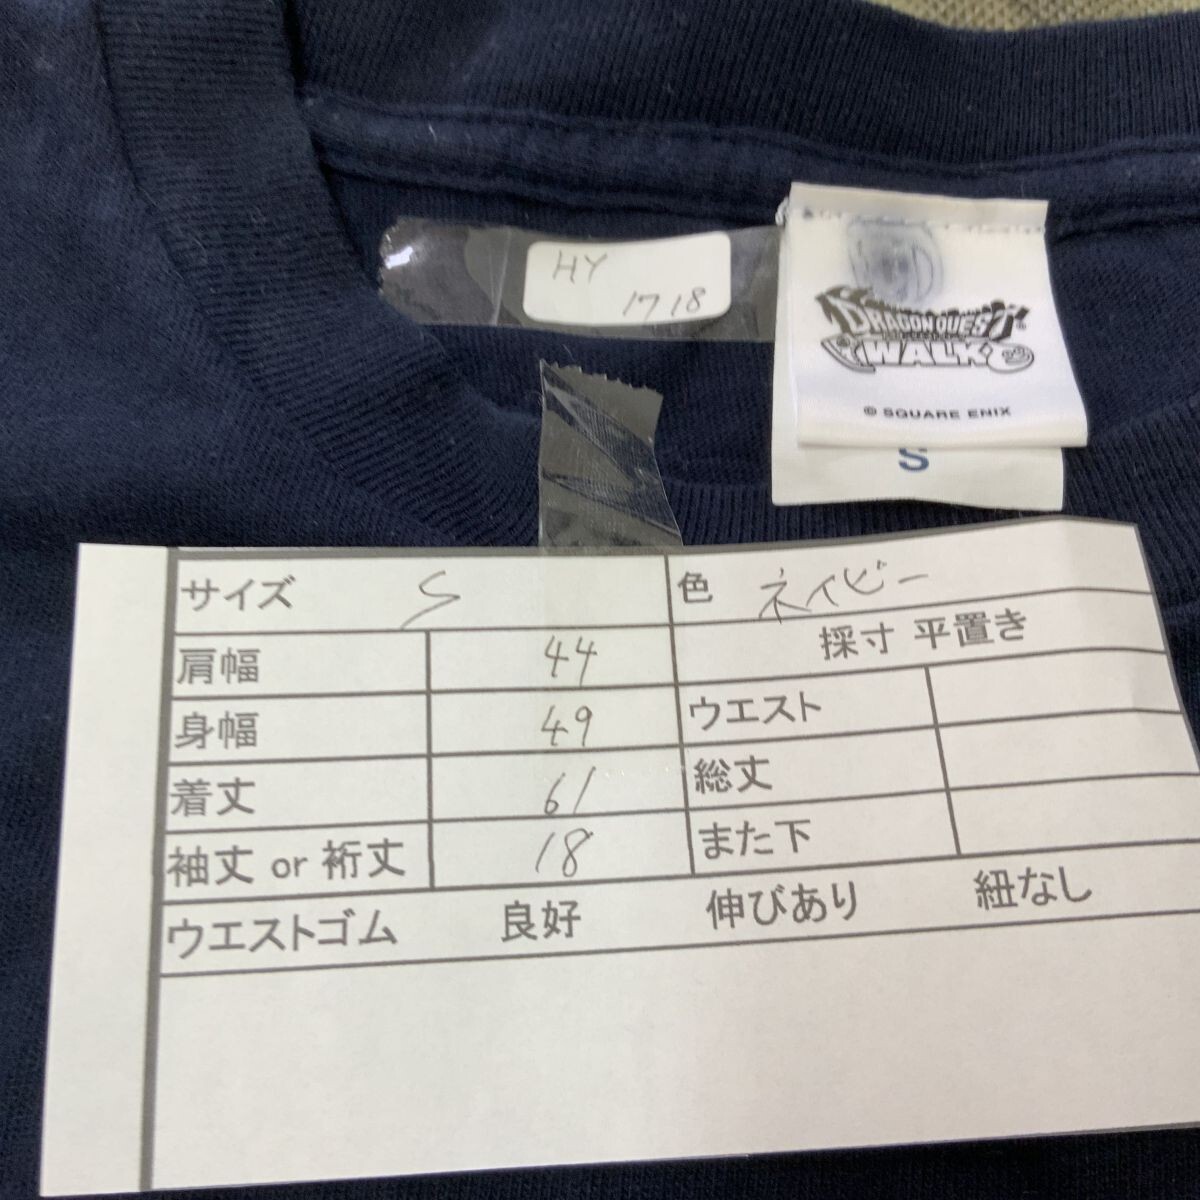 HY
1718
DRAGON QUEST
WALK
© SQUARE ENIX
S
サイズ S 色 ネイビー
肩幅 44 採寸 平置き
身幅 49 ウエスト
着丈 61 総丈
袖丈 or 裄丈 18 また下
ウエストゴム 良好 伸びあり 紐なし